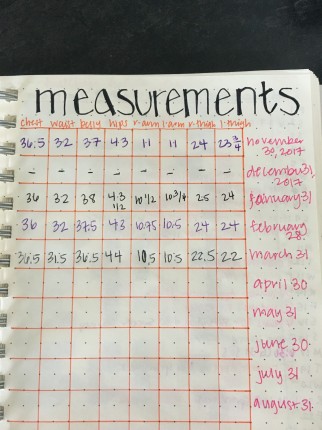 measurements
chest waist belly hips r-arm l-arm r-thigh l-thigh
36.5 32 37 43 11 11 24 23 3/4 november 30, 2017
- - - - - - - - december 31, 2017
36 32 38 43 1/2 10 1/2 10 3/4 25 24 january 31
36 32 37.5 43 10.75 10.5 24 24 february 28
32 31.5 36.5 44 10.5 10.5 22.5 22 march 31
april 30
may 31
june 30
july 31
august 31